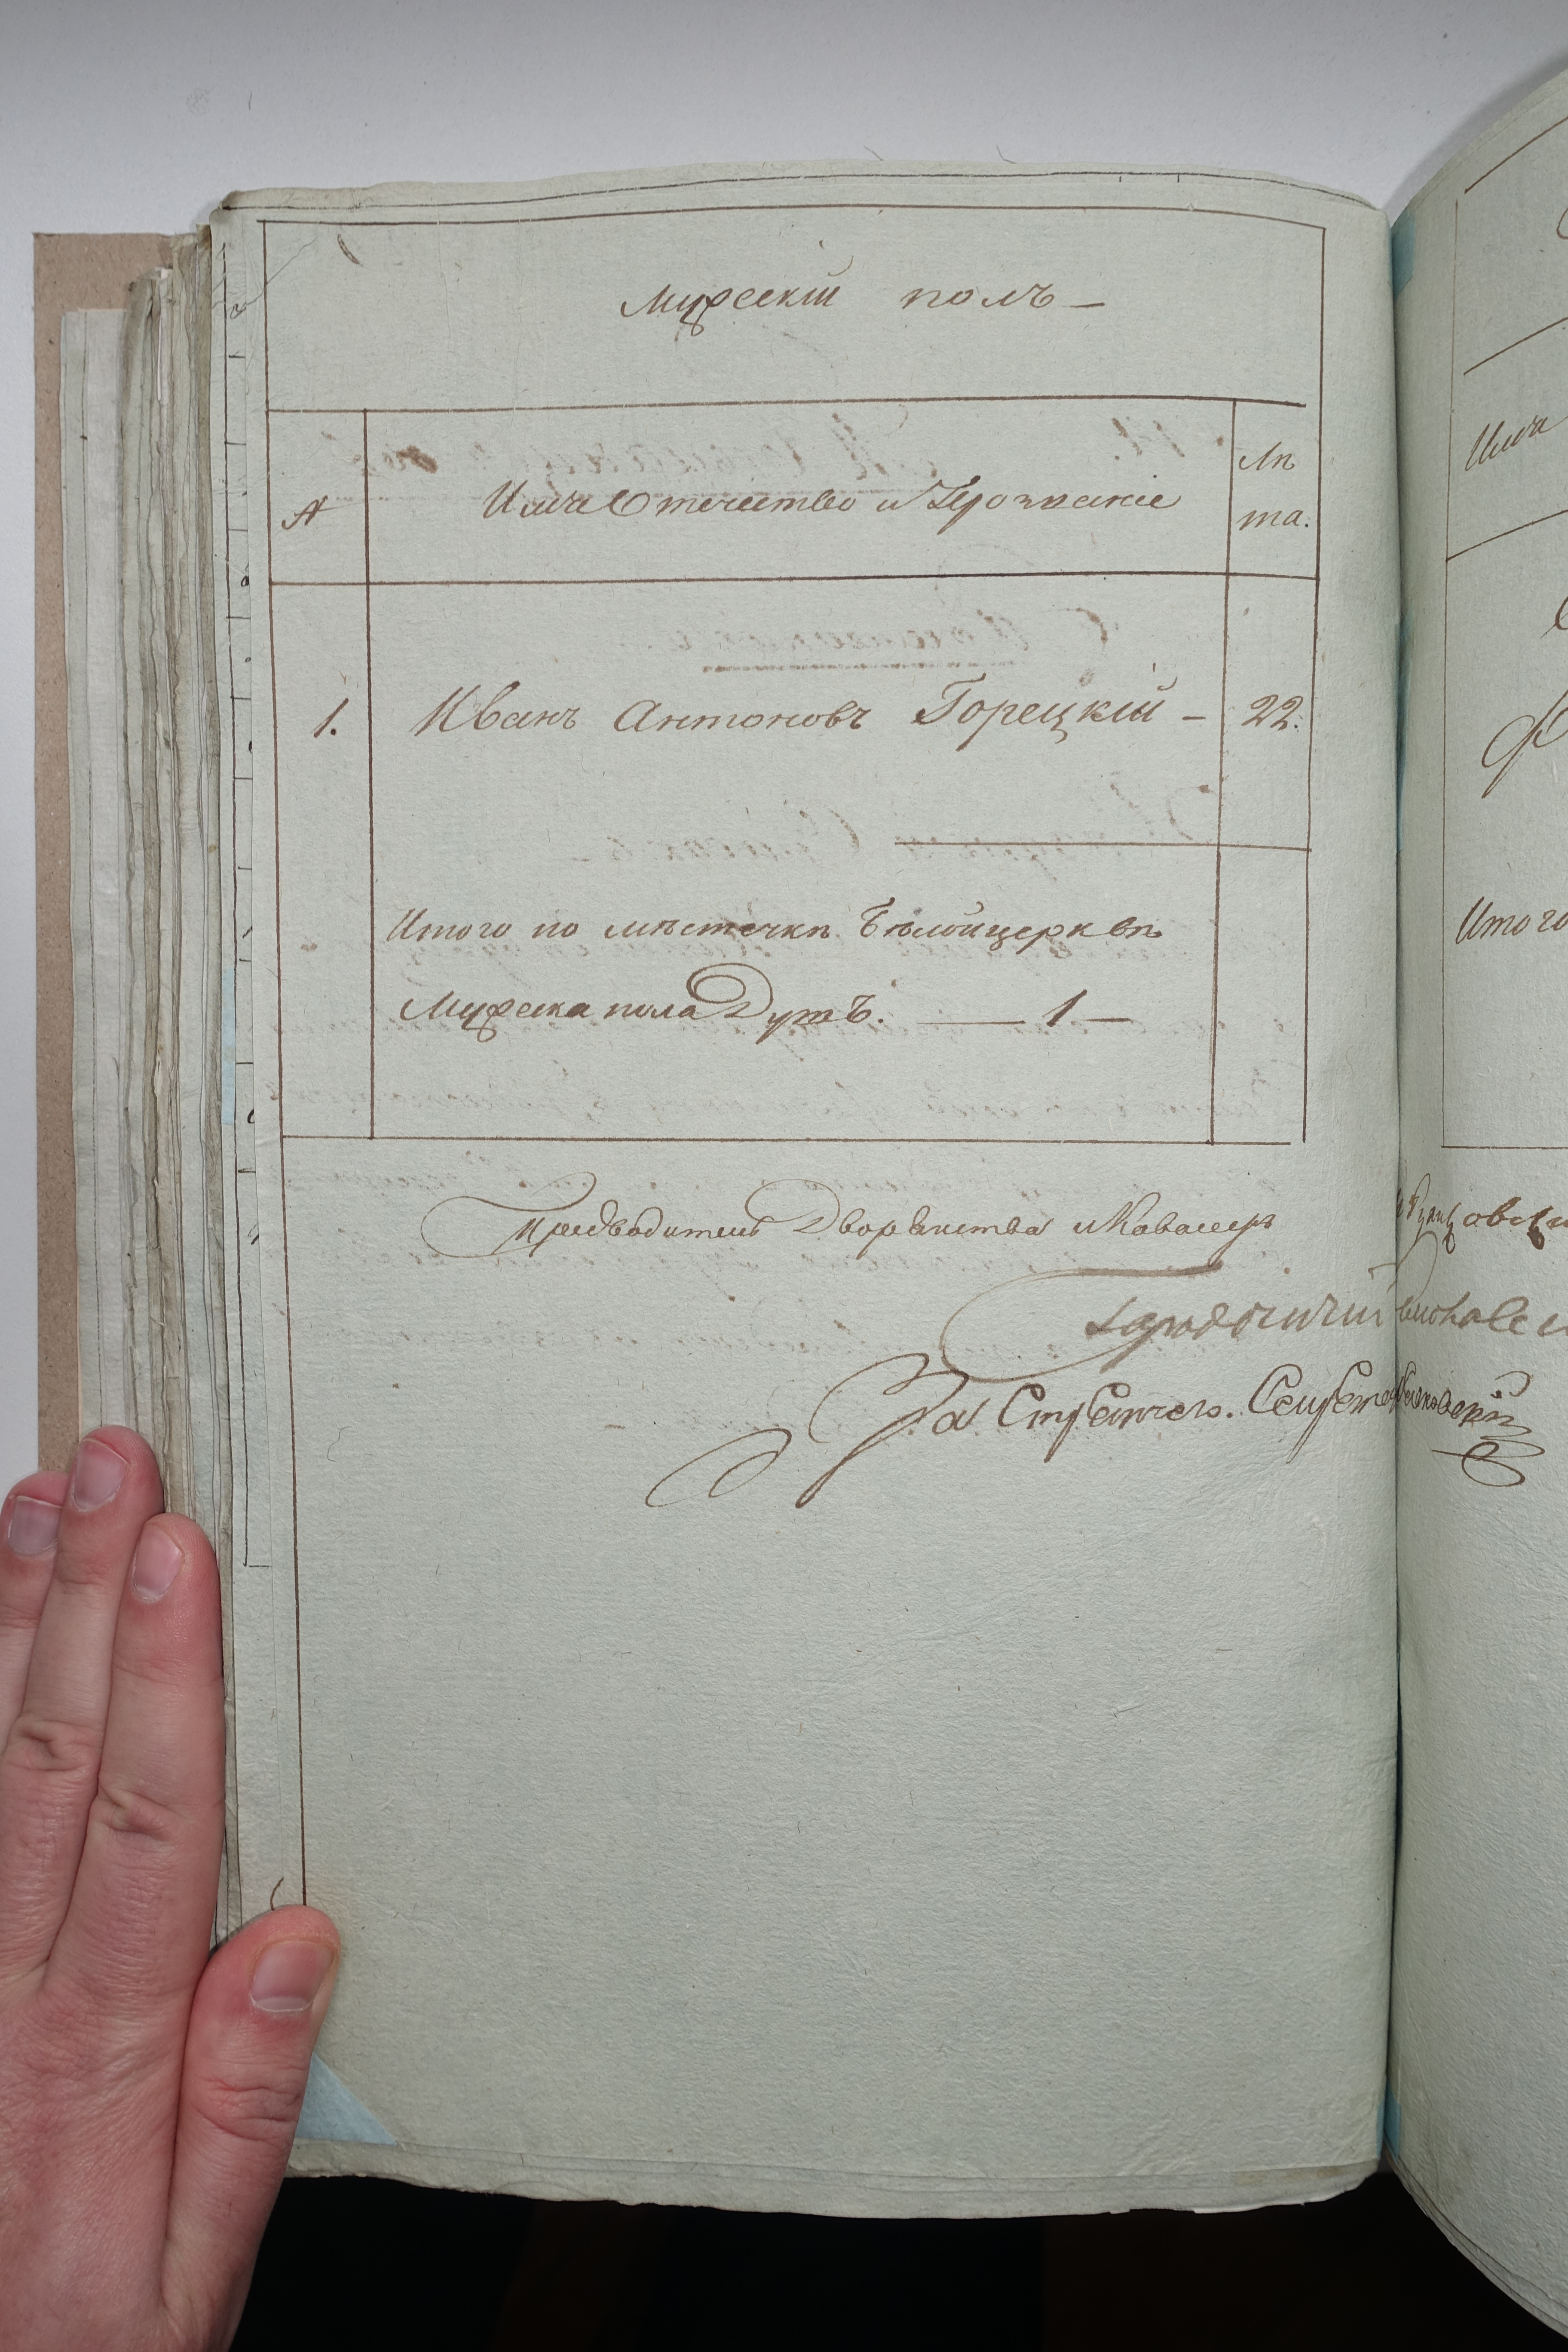 Мужескій полъ —
№
Имя Отечество и Прозваніе
Лѣ
та.
1.
Иванъ Антоновъ Горецкій —
22.
Итого по мѣстечкѣ Бѣлойцерквѣ
Мужеска пола Душъ. — 1 —
Предводитель Дворянства и Кавалеръ
Городничій
За Стряпчего. Секретарь
Имя
Итого